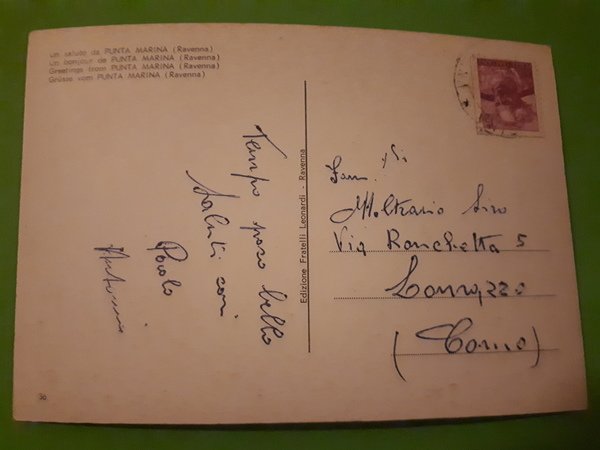 un saluto da PUNTA MARINA (Ravenna)
un bonjour de PUNTA MARINA (Ravenna)
Greetings from PUNTA MARINA (Ravenna)
Grüsse vom PUNTA MARINA (Ravenna)
Tempo poco bello
Saluti cari
Paolo
Antonia
Edizione Fratelli Leonardi - Ravenna
Fam.
Molteni Siro
Via Ronchetta 5
Lomazzo
(Como)
30